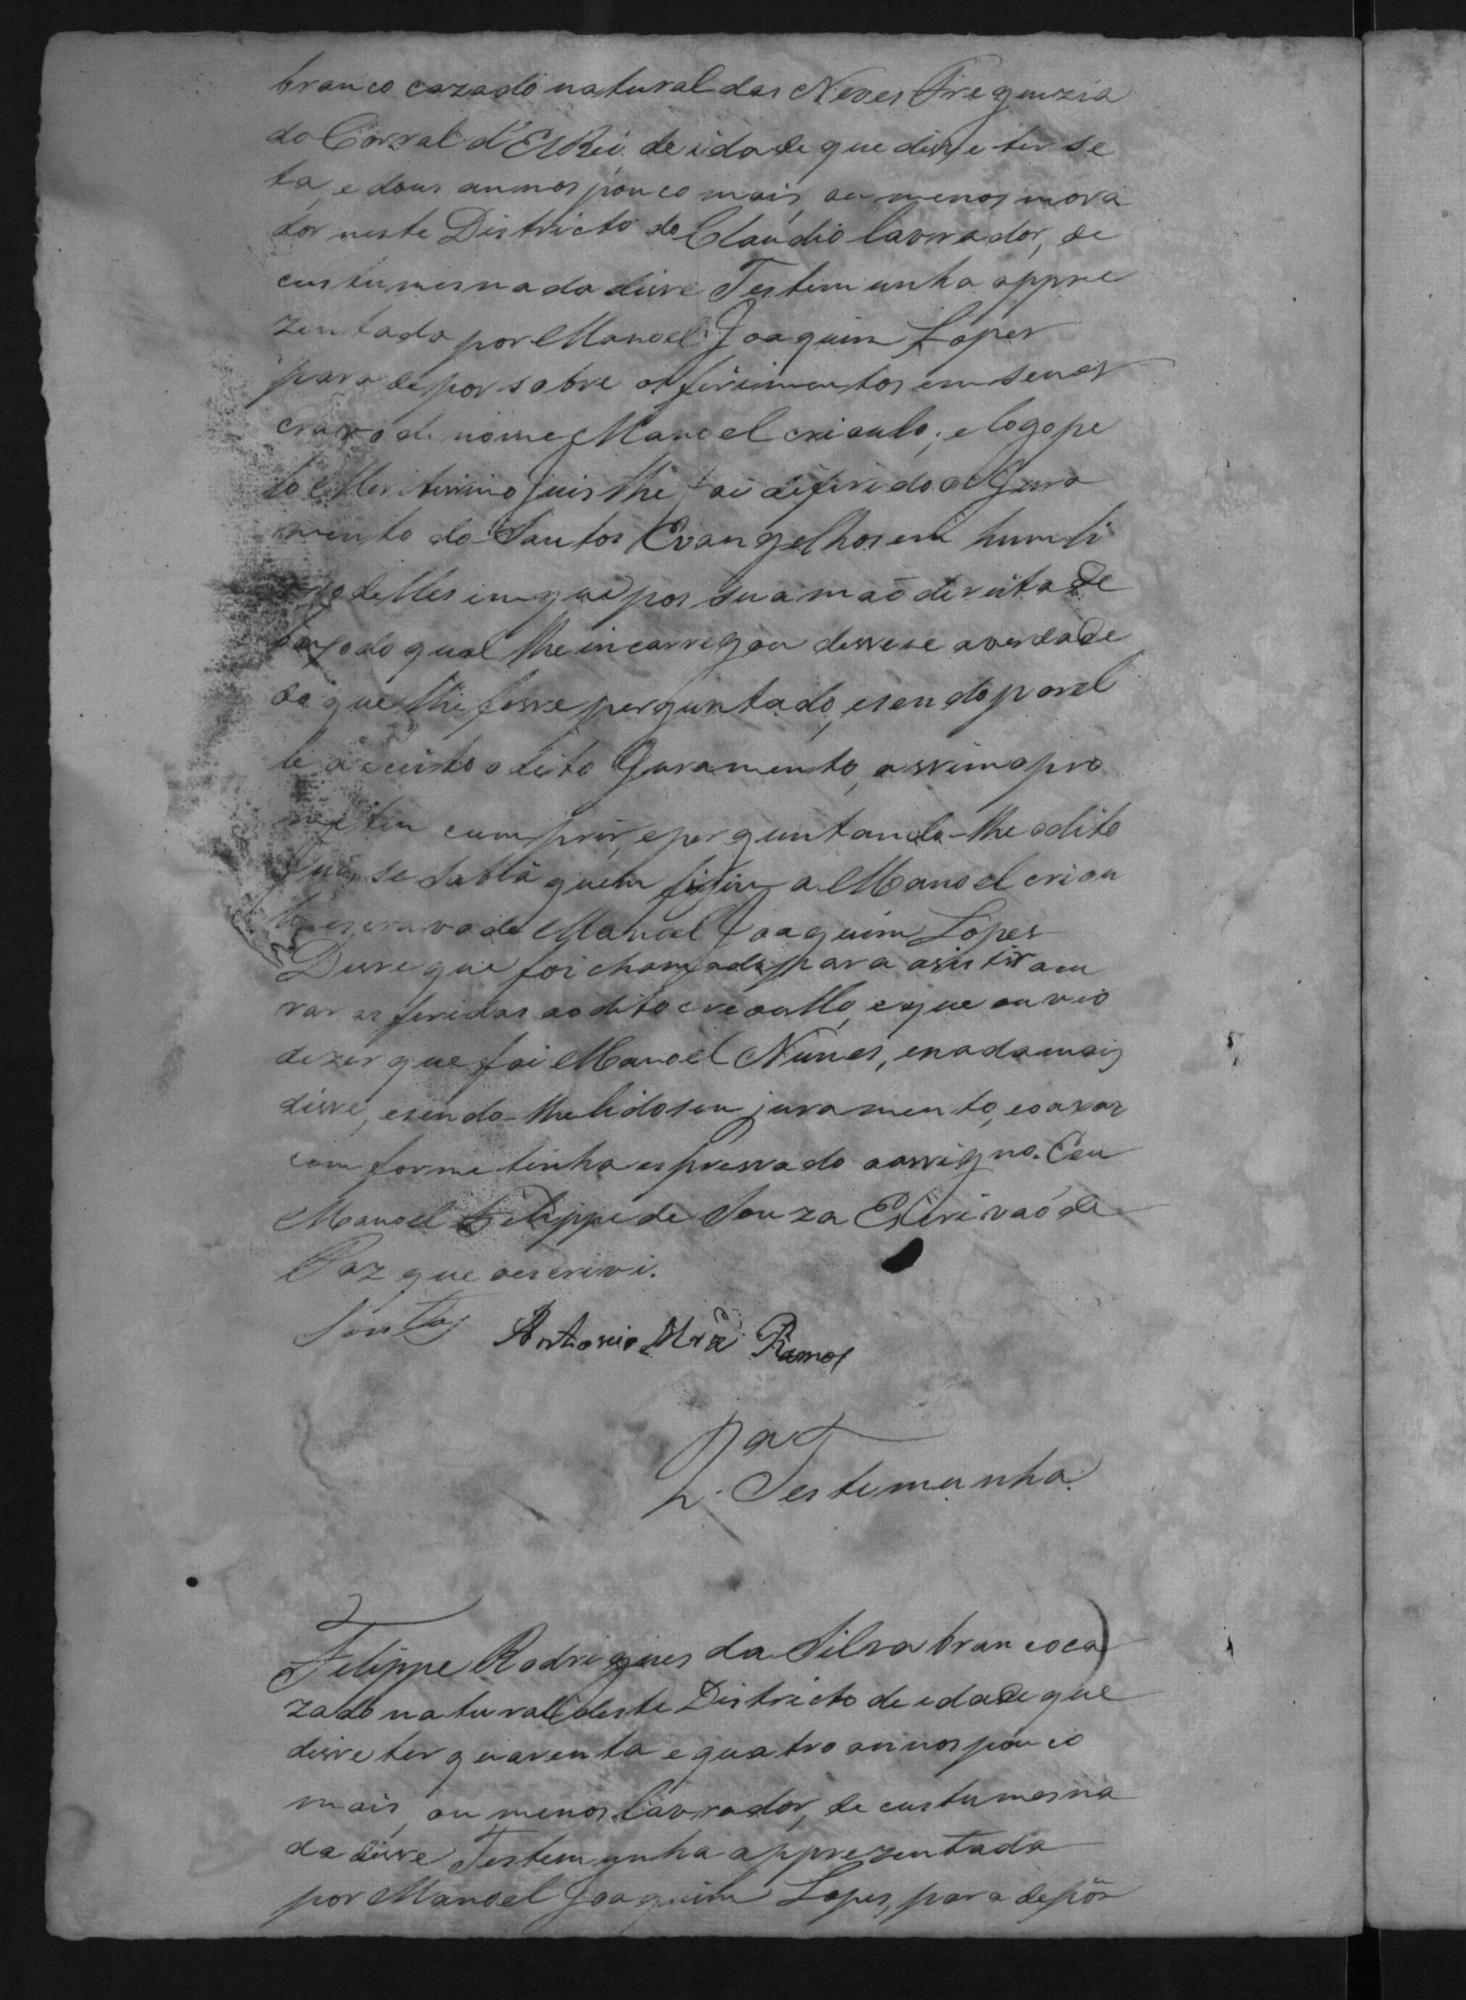 branco cazado natural das Neves Freguizia
do Corral d'ElRei de idade que disse ter se
ta, e dous annos pouco mais, ou menos mora
dor neste Districto do Claudio lavrador, de
custumes nada disse Testemunha appre
zentada por Manoel Joaquim Lopes
para depor sobre os ferimentos em seu es
cravo de nome Manoel crioulo, e logo pe
lo Meritissimo Juis lhe foi diferido o Jura
mento do Santos Evangelhos em hum li
vro delles em que pos sua mão direita de
baxo do qual lhe incarregou dissese a verdade
do que lhe fosse perguntado, e sendo por el
le aceito o dito Juramento, assim o pro
meteu cumprir, e perguntando-lhe o dito
Juis se sabia quem firiu a Manoel criou
lo escravo de Manoel Joaquim Lopes
Disse que foi chamado para asistir a cu
rar as feridas ao dito creoullo, e que ouvio
dizer que foi Manoel Nunes, e nada mais
disse, e sendo-lhe lido seu juramento, e o axar
comforme tinha espressado o assigno. Eeu
Manoel Felippe de Souza Escrivaõ de
Paz que o escrivi.
Santos Antonio Mrª Ramos
Testemunha
Felippe Rodrigues da Silva branco ca
zado natural deste Districto de idade que
disse ter quarenta e quatro annos pouco
mais, ou menos lavrador, de custumes na
da disse Testemunha apprezentada
por Manoel Joaquim Lopes, para depôr